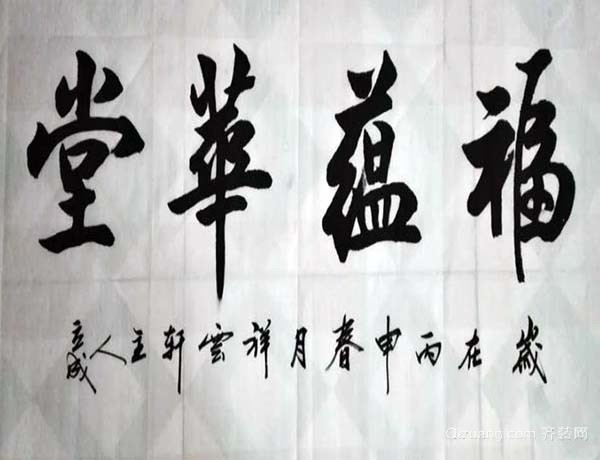 福蘊華堂
歲在丙申春月祥雲軒主人立成
Qizuang.com 齐装网